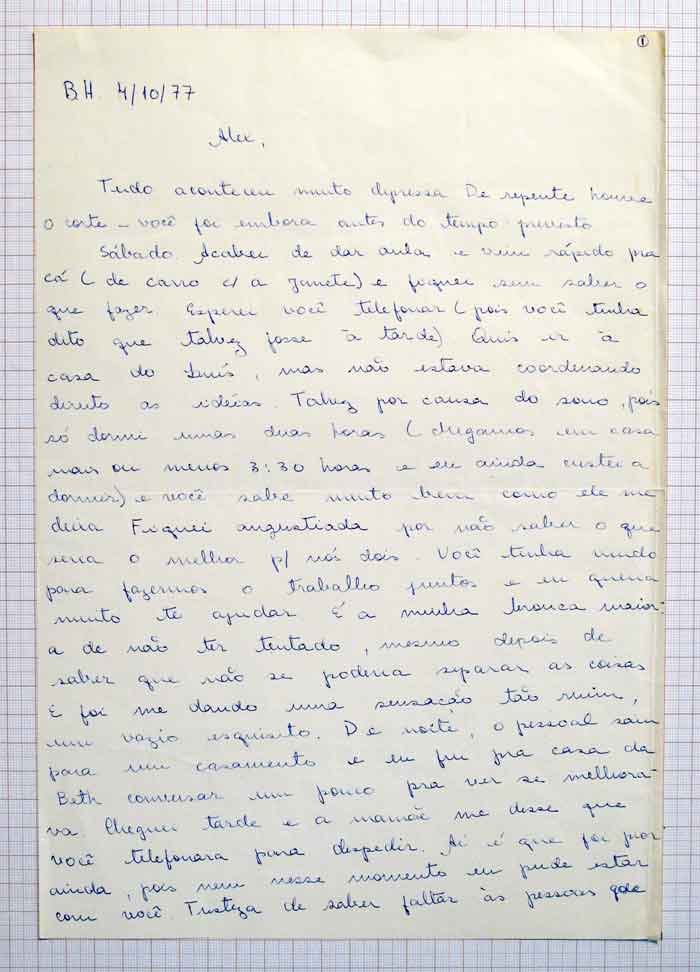 ①
BH. 4/10/77
Alex,
Tudo aconteceu muito depressa De repente houve
o corte – você foi embora antes do tempo previsto
Sábado. Acabei de dar aula e vim rápido pra
cá (de carro c/ a Janete) e fiquei sem saber o
que fazer. Esperei você telefonar (pois você tinha
dito que talvez fosse à tarde) Quis ir à
casa do Luís, mas não estava coordenando
direito as idéias. Talvez por causa do sono, pois
só dormi umas duas horas (chegamos em casa
mais ou menos 3:30 horas e eu ainda custei a
dormir) e você sabe muito bem como ele me
Fiquei angustiada por não saber o que
seria o melhor p/ nós dois. Você tinha vindo
para fazermos o trabalho juntos e eu queria
muito te ajudar É a minha bronca maior:
a de não ter tentado, mesmo depois de
saber que não se poderia separar as coisas
E foi me dando uma sensação tão ruim,
um vazio esquisito. De noite, o pessoal saiu
para um casamento e eu fui pra casa da
Beth conversar um pouco pra ver se melhora-
va. Cheguei tarde e a mamãe me disse que
você telefonara para despedir. Aí é que foi pior
ainda, pois nem nesse momento eu pude estar
com você. Tristeza de saber faltar às pessoas que